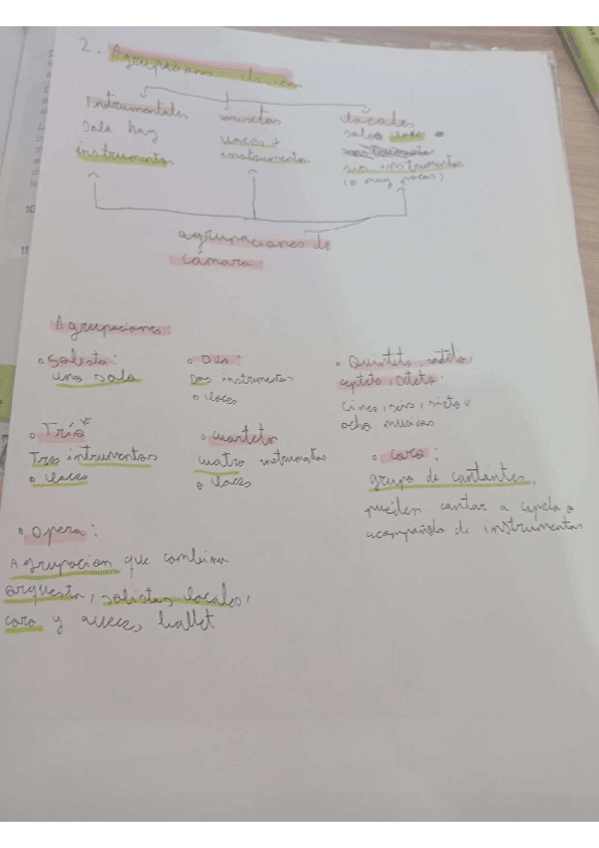 2. Agrupaciones
Instrumentales
solo hay
instrumentos
mixtas
voces +
instrumento
vocales
solo voces o
sin instrumentos
(o muy pocos)
agrupaciones de
cámara
Agrupaciones:
• Solista:
uno solo
• Dúo:
Dos instrumentos
o voces
• Quinteto, sexteto,
septeto, octeto:
cinco, seis, siete u
ocho musicos
• Trío
Tres instrumentos
o voces
• cuarteto
cuatro instrumentos
o voces
• coro:
grupo de cantantes,
pueden cantar a capela o
acompañado de instrumentos
• opera:
Agrupacion que combina
orquesta, solistas vocales,
coro y aveces ballet